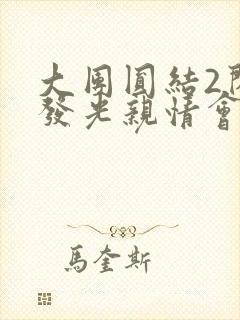 大團圓結2閃
發光親情會
馬奎斯